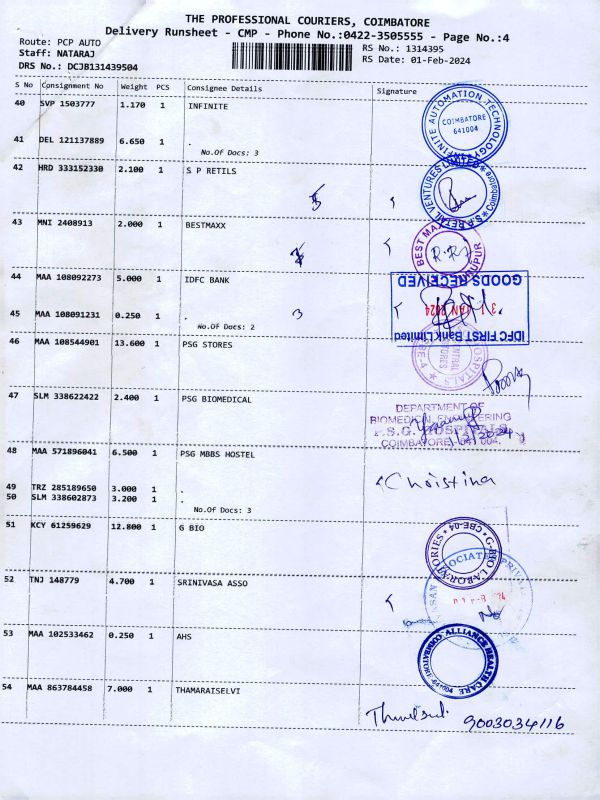 THE PROFESSIONAL COURIERS, COIMBATORE
Delivery Runsheet - CMP - Phone No.:0422-3505555 - Page No.:4
Route: PCP AUTO
Staff: NATARAJ
DRS No.: DCJB131439504
RS No.: 1314395
RS Date: 01-Feb-2024
S No Consignment No Weight PCS Consignee Details Signature
40 SVP 1503777 1.170 1 INFINITE
COIMBATORE
641004
41 DEL 121137889 6.650 1 .
No.Of Docs: 3
42 HRD 333152330 2.100 1 S P RETILS
43 MNI 2408913 2.000 1 BESTMAXX
BEST MAX
44 MAA 108092273 5.000 1 IDFC BANK
GOODS RECEIVED
31 JAN 2024
IDFC FIRST Bank Limited
45 MAA 108091231 0.250 1 .
No.Of Docs: 2
3
46 MAA 108544901 13.600 1 PSG STORES
47 SLM 338622422 2.400 1 PSG BIOMEDICAL
DEPARTMENT OF
BIOMEDICAL ENGINEERING
P.S.G. HOSPITALS
COIMBATORE - 641 004.
1/2/2024
48 MAA 571896041 6.500 1 PSG MBBS HOSTEL
Christina
49 TRZ 285189650 3.000 1 .
50 SLM 338602873 3.200 1 .
No.Of Docs: 3
51 KCY 61259629 12.800 1 G BIO
G-BIO LABORATORIES CBE-04
52 TNJ 148779 4.700 1 SRINIVASA ASSO
53 MAA 102533462 0.250 1 AHS
ALLIANCE HEALTH CARE
COIMBATORE-641004
54 MAA 863784458 7.000 1 THAMARAISELVI
9003034116